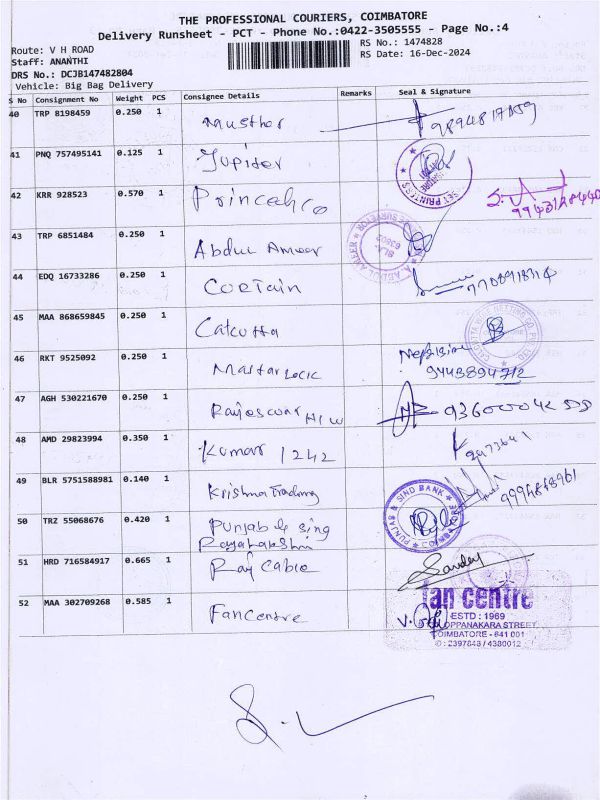 THE PROFESSIONAL COURIERS, COIMBATORE
Delivery Runsheet - PCT - Phone No.:0422-3505555 - Page No.:4
Route: V H ROAD
RS No.: 1474828
Staff: ANANTHI
RS Date: 16-Dec-2024
DRS No.: DCJB147482804
Vehicle: Big Bag Delivery
S No Consignment No Weight PCS Consignee Details Remarks Seal & Signature
40 TRP 8198459 0.250 1 Musthar
41 PNQ 757495141 0.125 1 Jupiter
SET PRINTERS
42 KRR 928523 0.570 1
43 TRP 6851484 0.250 1 Abdul Ameer
44 EDQ 16733286 0.250 1 Curtain
45 MAA 868659845 0.250 1 Calcutta
46 RKT 9525092 0.250 1
9443894712
47 AGH 530221670 0.250 1 Rajeswar H/W
48 AMD 29823994 0.350 1 Kumar 1242
49 BLR 5751588981 0.140 1 Krishna Trading
50 TRZ 55068676 0.420 1 Punjab & sing
PUNJAB & SIND BANK
51 HRD 716584917 0.665 1 Raj Cable
52 MAA 302709268 0.585 1 Fancentre
fan centre
ESTD : 1969
OPPANAKARA STREET
COIMBATORE - 641 001
: 2397848 / 4380012